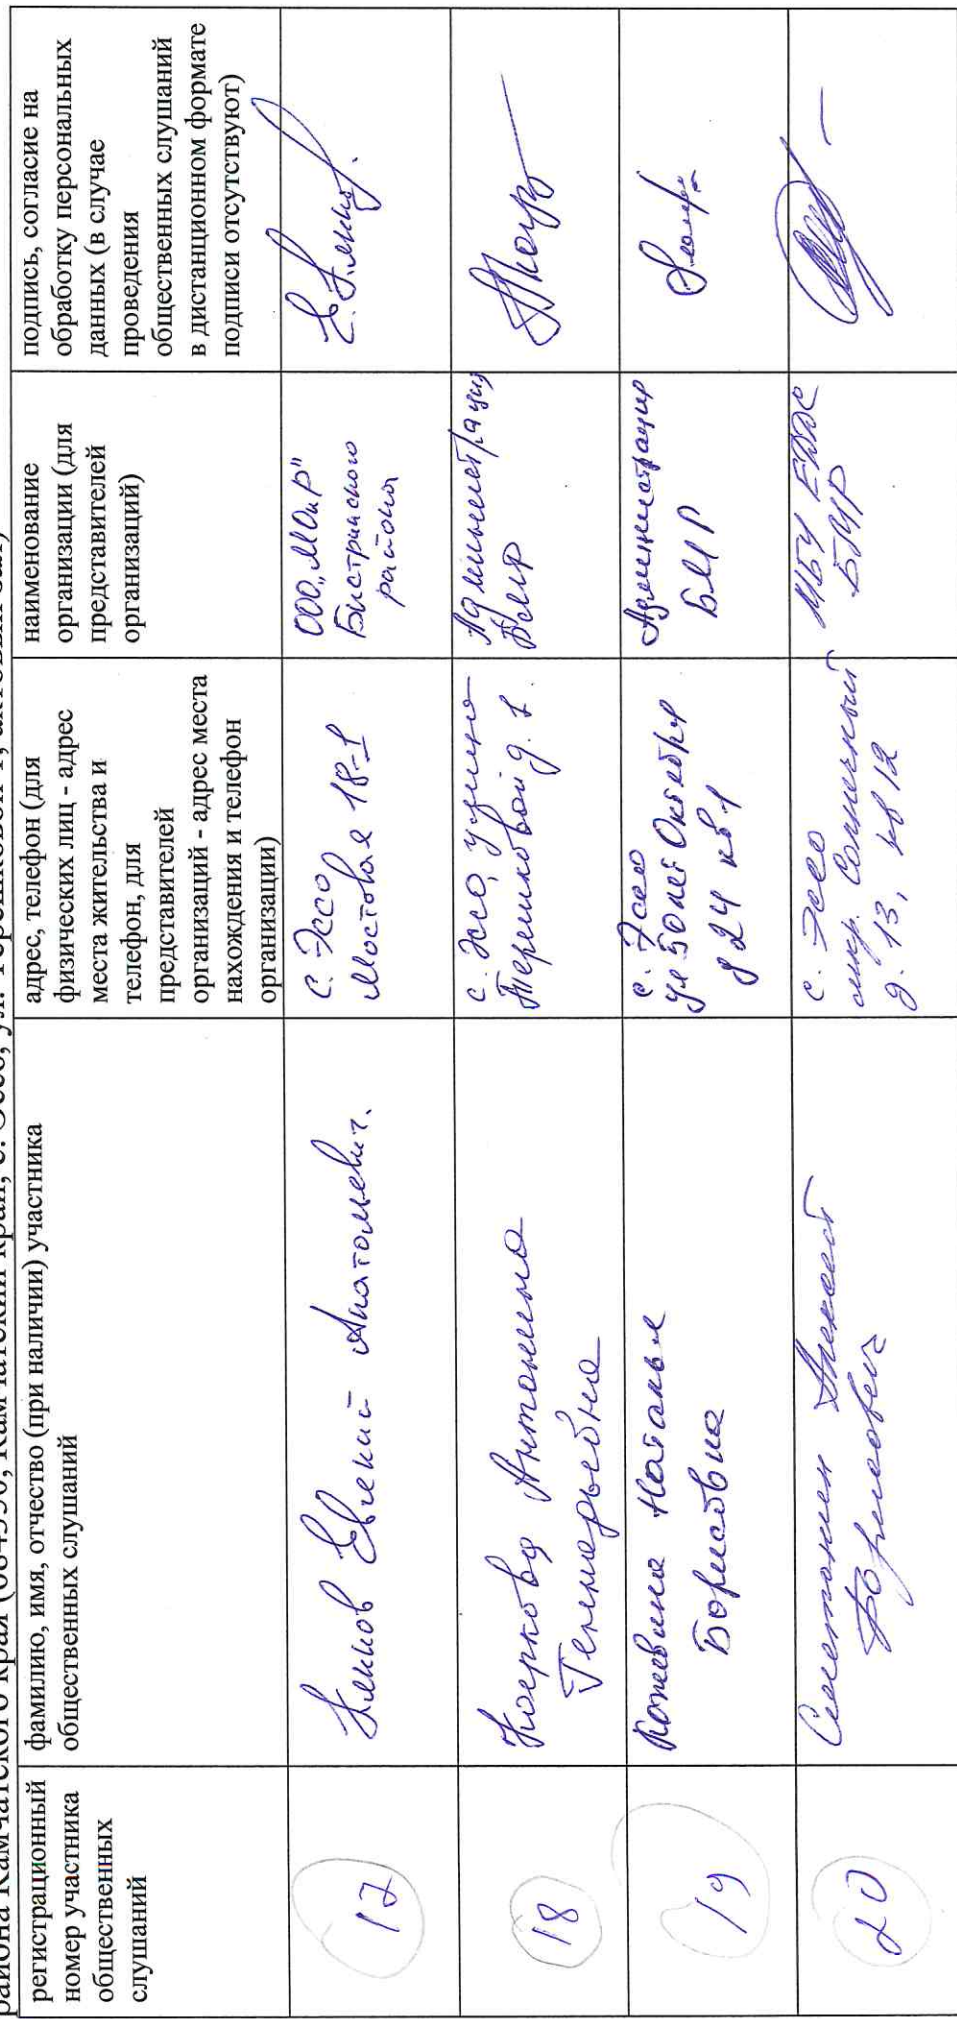 района Камчатского края (684350, Камчатский край, с. Эссо, ул. Терешковой 1, актовый зал)
регистрационный
номер участника
общественных
слушаний
фамилию, имя, отчество (при наличии) участника
общественных слушаний
адрес, телефон (для
физических лиц - адрес
места жительства и
телефон, для
представителей
организаций - адрес места
нахождения и телефон
организации)
наименование
организации (для
представителей
организаций)
подпись, согласие на
обработку персональных
данных (в случае
проведения
общественных слушаний
в дистанционном формате
подписи отсутствуют)
17
Евгений Анатольевич.
с. Эссо
Мостовая 18-1
ООО „МОиР"
Быстринского
района
18
Антонина
с. Эссо, улица
Терешковой д. 1.
Администрация
БМР
19
Наталья
Борисовна
с. Эссо
ул 50 лет Октября
д 24 кв 1
Администрация
БМР
20
Алексей
Борисович
с. Эссо
мкр. Солнечный
д. 13, кв 12
МБУ ЕДДС
БМР